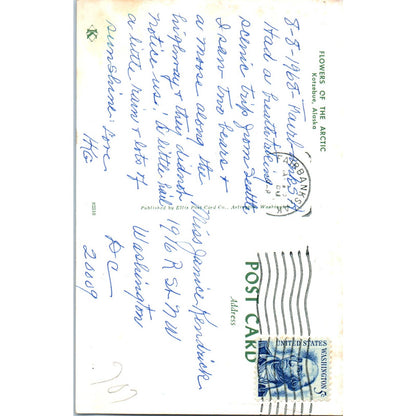 FLOWERS OF THE ARCTIC
Kotzebue, Alaska
8-8-1968-
Had a
scenic trip from Seattle
I saw two bears &
a moose along the
highway & they didn't
notice us. A little hail
a little rain & lots of
sunshine. Love
HG
K
Published by Ellis Post Card Co., Arlington, Washington
POST CARD
Address
Miss Janice Kendrick
1916 R St NW
Washington
DC
20009
FAIRBANKS
UNITED STATES
WASHINGTON 5¢